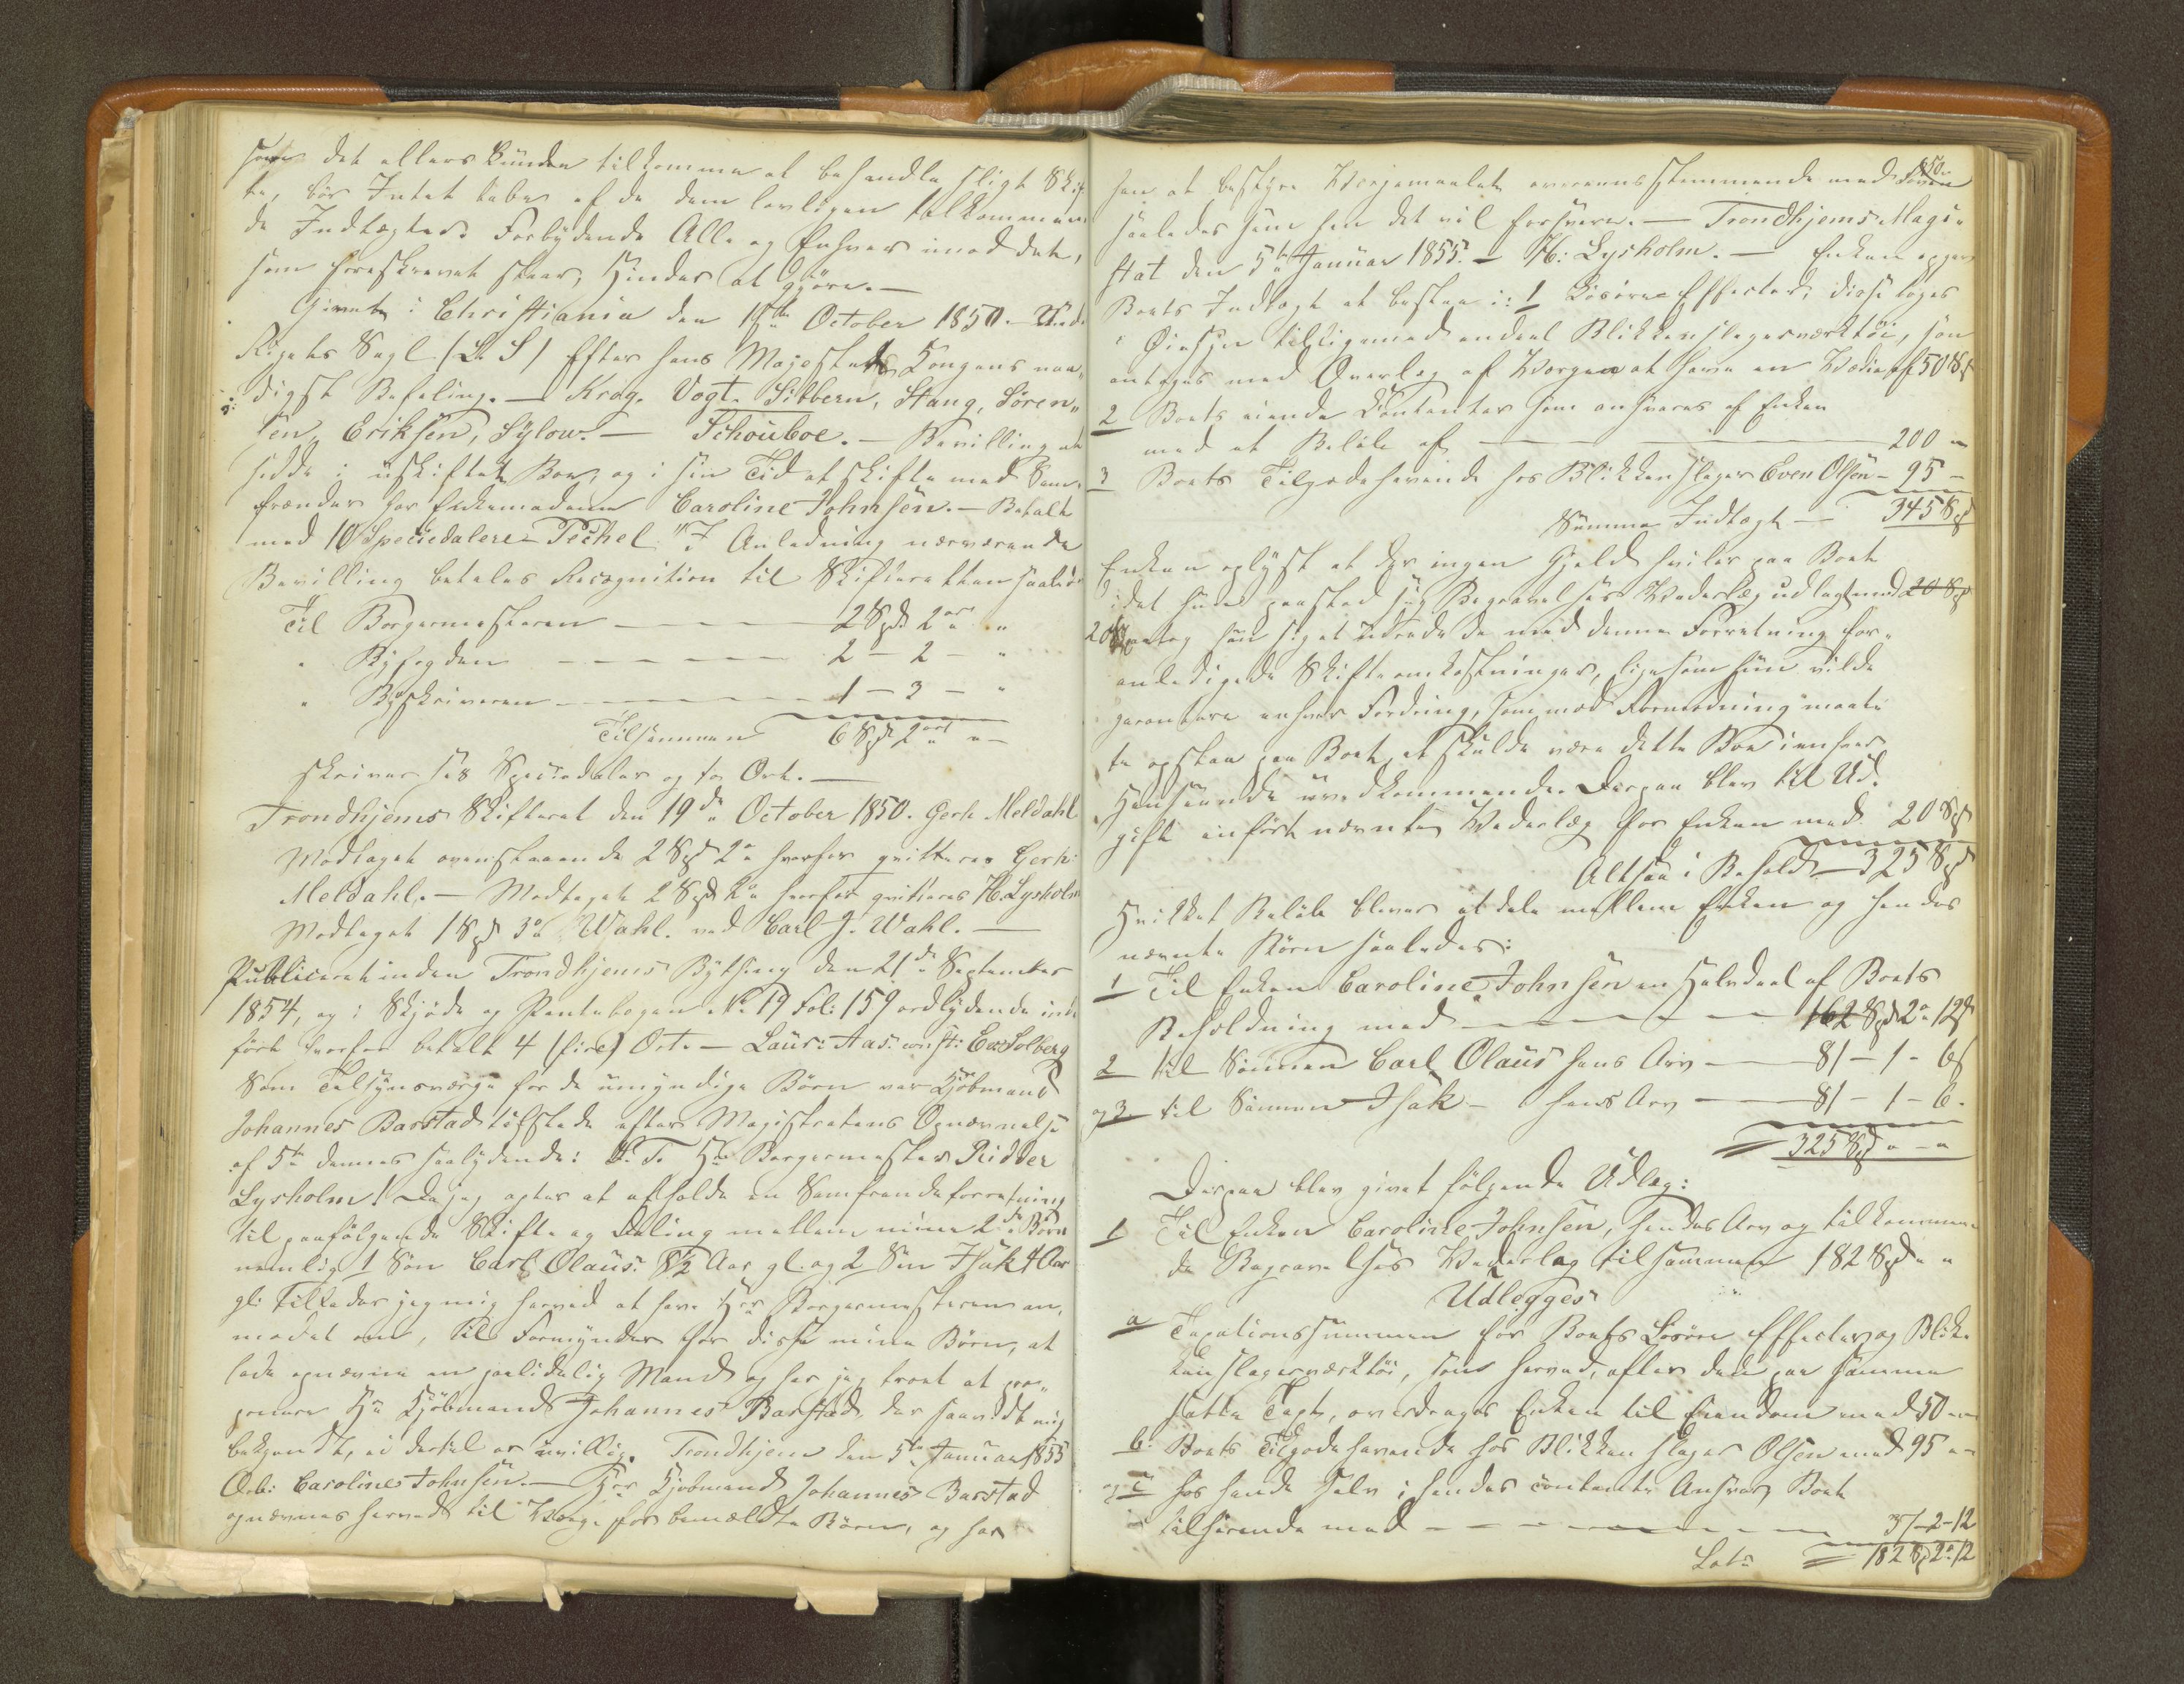 som det ellers kunde tilkomme at behandle sligt Skif-
te, bør Intet tabe af de dem lovligen tilkommen-
de Indtægter. Forbydende Alle og Enhver imod det,
som foreskrevet staaer, Hinder at gjøre. —
Givet i Christiania den 15de October 1850. Under
Rigets Segl. (L. S) Efter Hans Majestæts Kongens naa-
digst Befaling. — Krog. Vogt. Sibbern, Stang, Sören-
sen, Eriksen, Sylow. — Schouboe. — Bevilling at
sidde i uskiftet Boe, og i sin Tid at skifte med Sam-
frænder for Enkemadame Caroline Johnsen. — Betalt
med 10 Speciedalere Pechel. "I Anledning nærværende
Bevilling betales Recognition til Skifteretten saaledes
Til Borgermesteren — 2 Spd. 2 ort "
" Byfogden — 2 — 2 — "
" Byskriveren — 1 — 3 — "
Tilsammen 6 Spd 2 ort " —
skriver sex Speciedaler og to Ort. —
Trondhjems Skifteret den 19de October 1850. Gerh Meldahl
Modtaget ovenstaaende 2 Spd 2 o hvorfor qvitteres Gerh:
Meldahl. — Modtaget 2 Spd 2 o hvorfor qvitteres H. Lysholm
Modtaget 1 Spd 3 o Wahl. ved Carl J. Wahl. —
Publiceret inden Trondhjems Bything den 21de September
1854, og i Skjøde og Pantebogen No 19 Fol: 159 ordlydende ind-
ført hvorfor betalt 4 (fire) Ort. — Laur: Aas. const: Ew: Solberg
Som Tilsynsværge for de umyndige Børn var Kjøbmand
Johannes Barstad tilstede efter Magistratens Opnævnelse
af 5te dennes saalydende: P. T. Hr Borgermester Ridder
Lysholm! Da jeg agter at afholde en Samfrændeforretning
til paafølgende Skifte og Deling mellem mine 2de Børn
nemlig 1 Søn Carl Olaus 8½ Aar gl. og 2 Søn Isak 4 Aar
gl. tillader jeg mig herved at have Hr Borgermesteren an-
modet om, til Formynder for disse mine Børn, at
lade opnævne en paalidelig Mand og har jeg troet at pro-
ponere Hr Kjøbmand Johannes Barstad, der saavidt mig
bekjendt, ei dertil er uvillig. Trondhjem den 5te Januar 1855
Ærb: Caroline Johnsen. — Hr Kjøbmand Johannes Barstad
opnævnes herved til Værge for bemældte Børn, og har
150.
han at bestyre Værgemaalet overeensstemmende med Loven
saaledes som han det vil forsvare. — Trondhjems Magi-
strat den 5te Januar 1855. — H: Lysholm. — Enken opgav
Boets Indtægt at bestaa i: 1 Løsøre Effecter, disse toges
i Øiesyn tilligemed endeel Blikkenslagerværktøi, som
antoges med Overlæg af Værgen at have en Værdie af 50 Spd
2 Boets eiende Contanter som ansvares af Enken
med et Beløb af — 200 "
3 Boets Tilgodehavende hos Blikkenslager Even Olsen — 95 —
Summa Indtægt — 345 Spd
Enken oplyst at der ingen Gjeld hviler paa Boet
idet hun paastod sig Begravelses Vederlag udlagt med 20 Spd
20 Spd paatog hun sig at udrede de med denne Forretning for-
anledigede Skifteomkostninger, ligesom hun vilde
garantere enhver Fordring, som mod Formodning maat-
te opstaa paa Boet, at skulde være dette Boe i enhver
Henseende uvedkommende. Derpaa blev til Ud-
gift anført nævnte Vederlag for Enken med 20 Spd
Altsaa i Behold — 325 Spd
Hvilket Beløb bliver at dele mellem Enken og hendes
nævnte Børn saaledes:
1 Til Enken Caroline Johnsen en Halvdeel af Boets
Beholdning med — 162 Spd 2 o 12 s
2 til Sønnen Carl Olaus hans Arv — 81 — 1 - 6 s
og 3 til Sønnen Isak — hans Arv — 81 — 1 — 6.
325 Spd " — "
Derpaa blev givet følgende Udlæg:
1 Til Enken Caroline Johnsen, hendes Arv og tilkommen-
de Begravelses Vederlag tilsammen 182 Spd " "
Udlægges
a Taxationssummen for Boets Løsøre Effecter og Blik-
kenslagerværktøi, som herved, efter den paa samme
satte Taxt, overdrages Enken til Eiendom med 50 " —
b: Boets Tilgodehavende hos Blikkenslager Olsen med 95 " —
og c hos hende selv i hendes contante Ansvar Boet
tilhørende med — 37 — 2 — 12
Lats 182 Spd 2 o 12